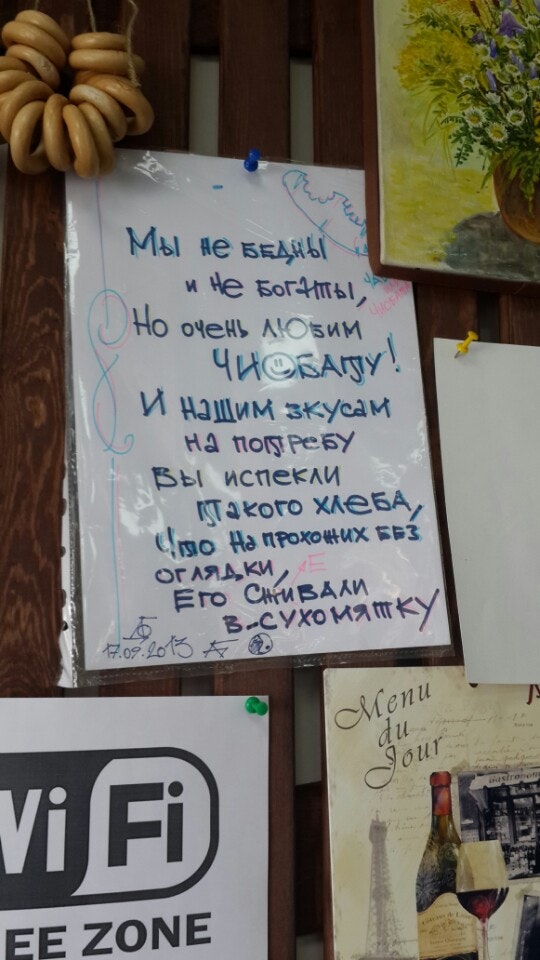 Мы не бедны
и не богаты,
Но очень любим
ЧИОБАТУ!
И нашим вкусам
на потребу
Вы испекли
такого хлеба,
Что на прохожих без
оглядки,
Е
Его сживали
в-сухомятку
17.09.2013
WiFi
EE ZONE
Menu
du
Jour